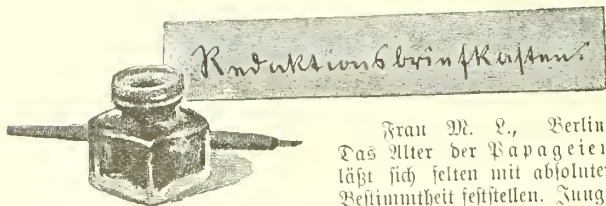 Redaktionsbriefkasten.
Frau M. L., Berlin
Das Alter der Papageien
läßt sich selten mit absolute
Bestimmtheit feststellen. Jung